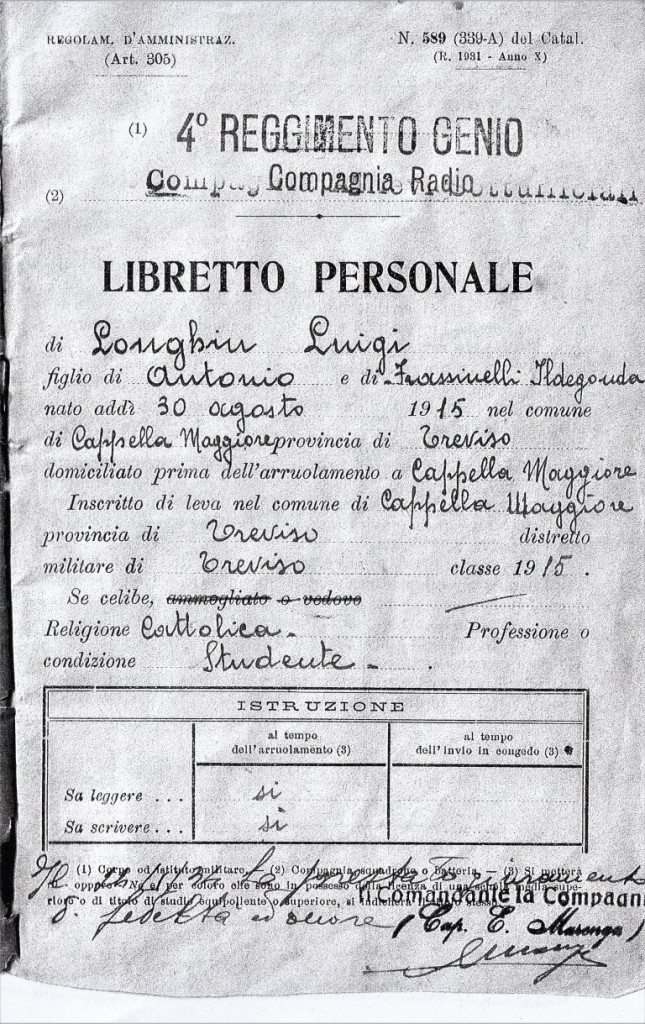 REGOLAM. D'AMMINISTRAZ.
(Art. 305)
N. 589 (339-A) del Catal.
(R. 1931 - Anno X)
(1) 4° REGGIMENTO GENIO
(2) Compagnia Radio
LIBRETTO PERSONALE
di Longhin Luigi
figlio di Antonio e di Frassinelli Ildegonda
nato addì 30 agosto 1915 nel comune
di Cappella Maggiore provincia di Treviso
domiciliato prima dell'arruolamento a Cappella Maggiore
Inscritto di leva nel comune di Cappella Maggiore
provincia di Treviso distretto
militare di Treviso classe 1915.
Se celibe, ammogliato o vedovo
Religione Cattolica. Professione o
condizione Studente
ISTRUZIONE
al tempo dell'arruolamento (3)
al tempo dell'invio in congedo (3)
Sa leggere . . . si
Sa scrivere . . . si
(1) Corpo od istituto militare. (2) Compagnia squadrone o batteria. (3) Si metterà
Sì oppure No e per coloro che sono in possesso della licenza di una scuola media supe-
riore o di titolo di studio equipollente o superiore, si indicherà
ha prestato giuramento
di fedeltà ed onore
Comandante la Compagni
(Cap. E. Marenga)